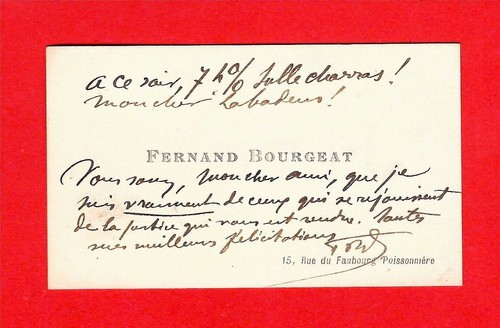 a ce soir, 7 h 0/0 Salle charras!
mon cher Labadens!
FERNAND BOURGEAT
Vous savez, mon cher ami, que je
suis vraiment de ceux qui se rejouissent
de la justice qui vous est rendue. Toutes
mes meilleurs félicitations
15, Rue du Faubourg Poissonnière